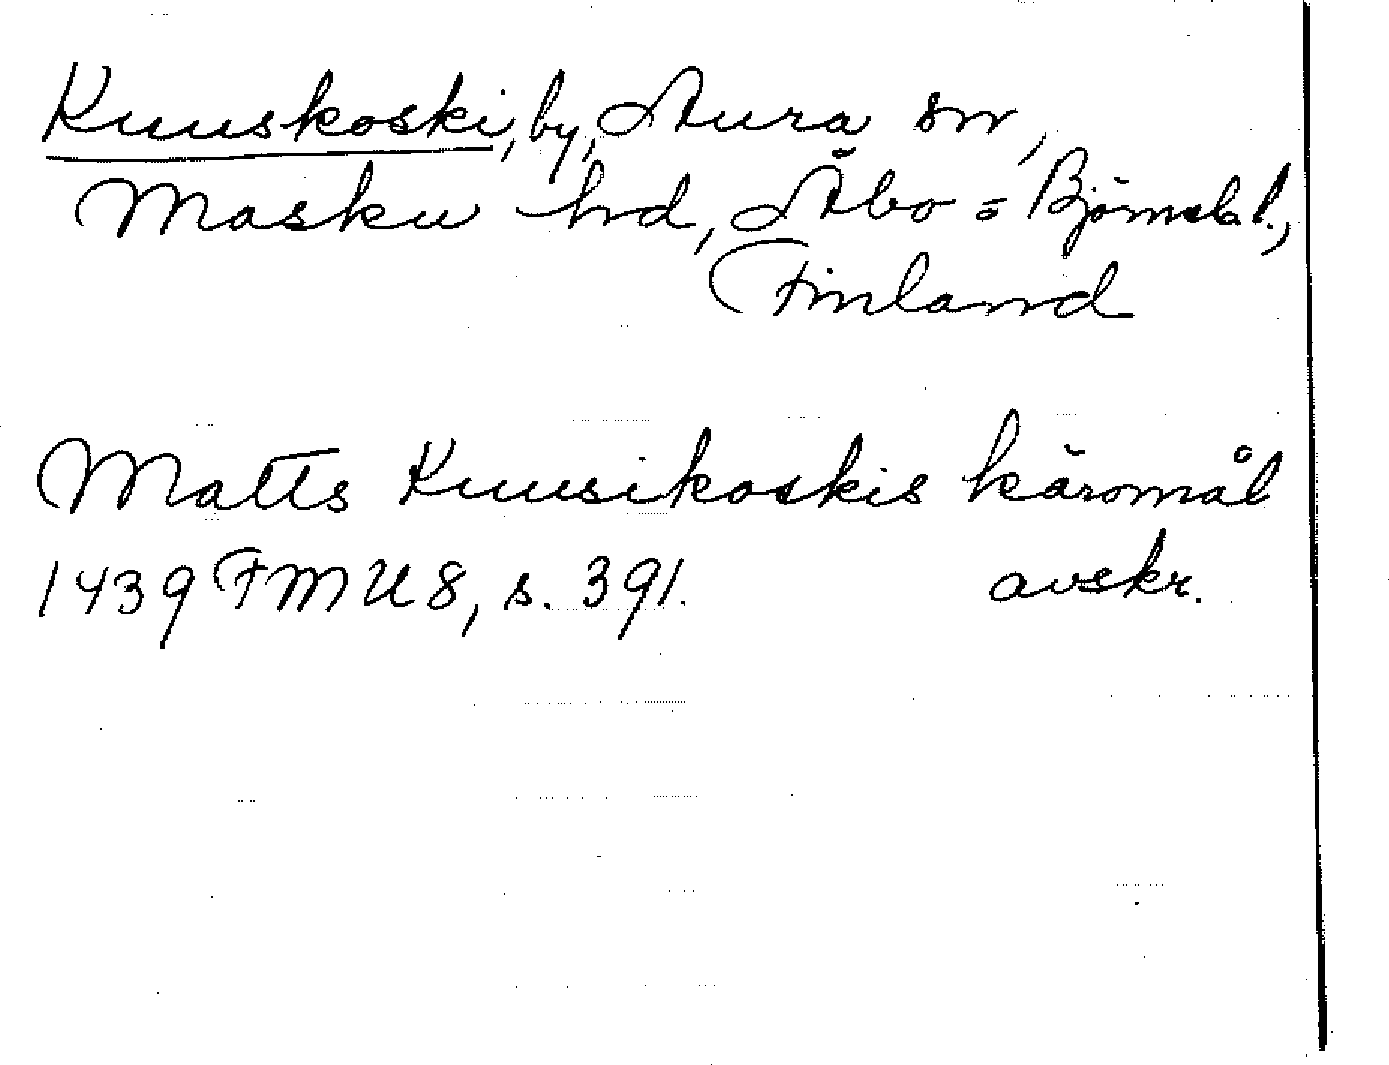 Kuuskoski, by, Aura sn,
Masku hd, Åbo o Björneb l.,
Finland
Matts Kuusikoskis käromål
1439 FMU 8, s. 391. avskr.